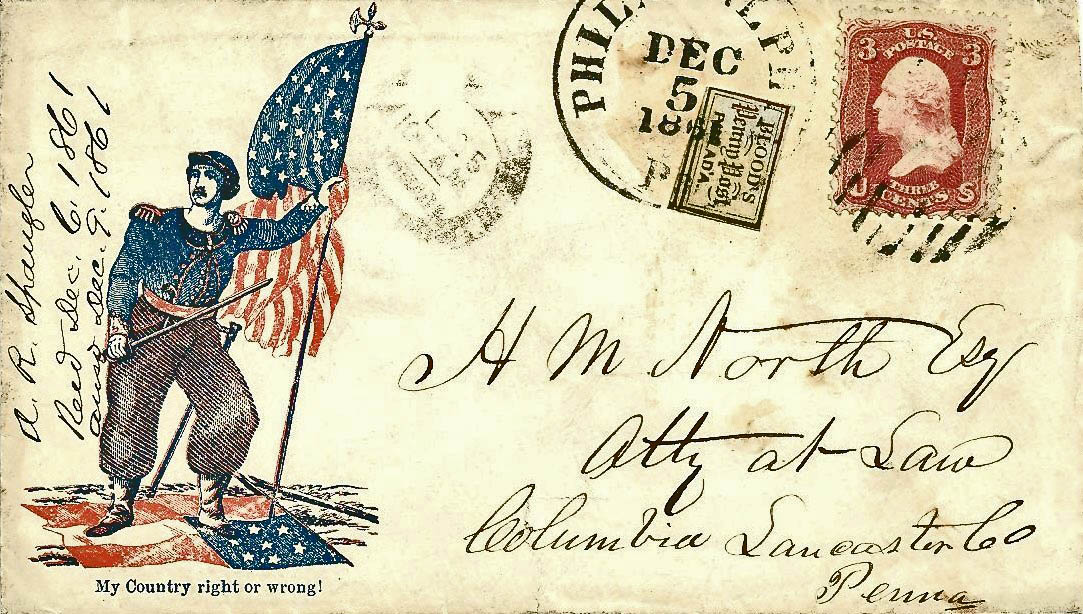 A. R. Spangler
Recd Dec. 6. 1861
answd Dec. 9. 1861
My Country right or wrong!
DEC
5
1861
BLOOD'S
Penny Post
PHILADA.
U.S.
POSTAGE
3 3
THREE
U CENTS S
H M North Esq
Atty at Law
Columbia Lancaster Co
Penna